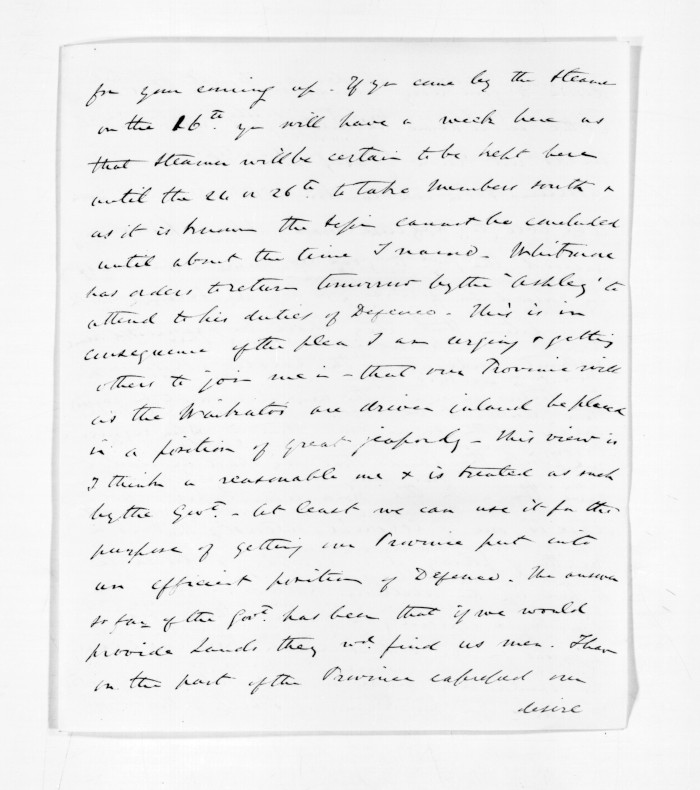 for your coming up. If you come by the Steamer
on the 16th. you will have a week here as
that Steamer will be certain to be kept here
until the 24 or 26th to take Members south &
as it is known the Sessn cannot be concluded
until about the time I named. Whitmore
has orders to return tomorrow by the "Ashley" to
attend to his duties of Defence. This is in
consequence of the plea I am urging & getting
others to join me in - that our Province will
as the Waikatos are driven inland be placed
in a position of great jeopardy - this view is
I think a reasonable one & is treated as such
by the Govt. - At least we can use it for the
purpose of getting our Province put into
an efficient position of Defence. The answer
so far of the Govt. has been that if we would
provide Lands they wd. find us men. I have
on the part of the Province expressed our
desire